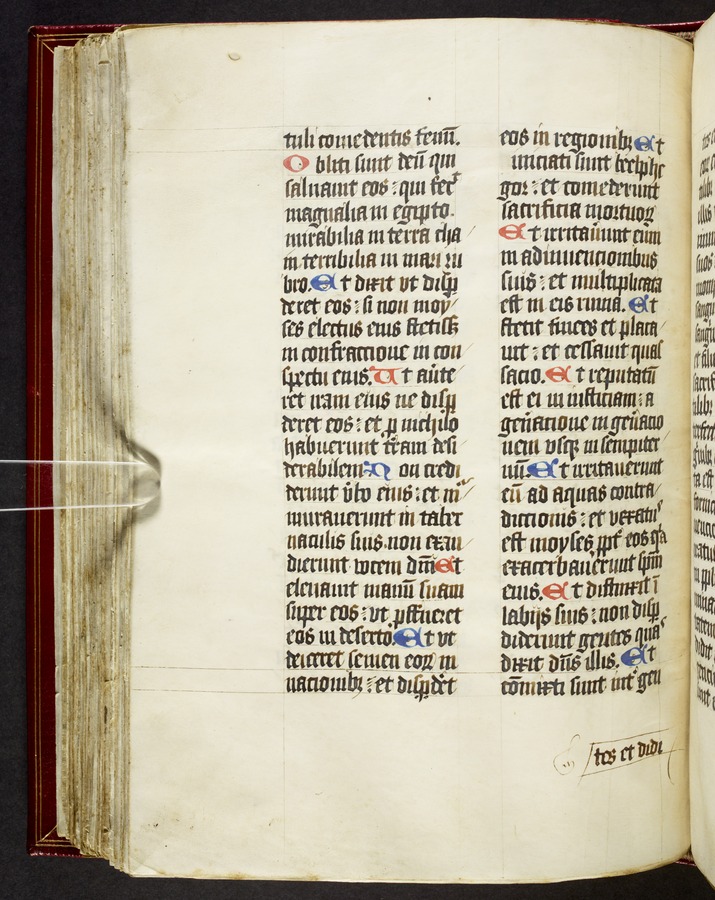 tuli comedentis fenū.
Obliti sunt deū qui
saluauit eos : qui fec̄
magnalia in egipto.
mirabilia in terra cha
m terribilia in mari ru
bro. Et dixit vt disp
deret eos : si non moy
ses electus eius stetiss
in confractione in con
spectu eius. Ut aūte
ret iram eius ne disp
deret eos : et p nichilo
habuerunt t̄ram desi
derabilem. Non credi
derunt v̄bo eius : et m̄
murauerunt in taber
naculis suis non exau
dierunt vocem dn̄i Et
eleuauit manū suam
super eos : vt pst̄neret
eos in deserto. Et vt
deiceret semen eoꝝ in
nacionibꝫ : et disp̄deret
eos in regionibꝫ Et
iniciati sunt beelphe
gor : et comederunt
sacrificia mortuoꝝ
Et irritauūnt eum
in adinuencionibus
suis : et multiplicata
est in eis ruina. Et
stetit finees et placa
uit : et cessauit quas
sacio. Et reputatū
est ei in iusticiam : a
gen̄acione in gen̄acio
nem vsqꝫ in sempiter
nū. Et irritauerunt
eū ad aquas contra
dictionis : et vexatus
est moyses ppt̄ eos qa
exacerbauerunt sp̄m
eius. Et distinxit ī
labijs suis : non disp
diderunt gentes quas
dixit dn̄s illis. Et
cōmixti sunt int̄ gen
tes et didi